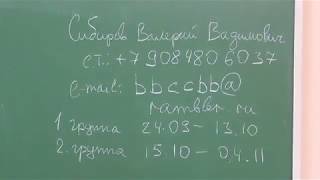 Сибиров Валерий Вадимович
с.т.: +7 908 480 60 37
e-mail: bbccbb@
rambler.ru
1. группа 24.09 – 13.10
2. группа 15.10 – 04.11